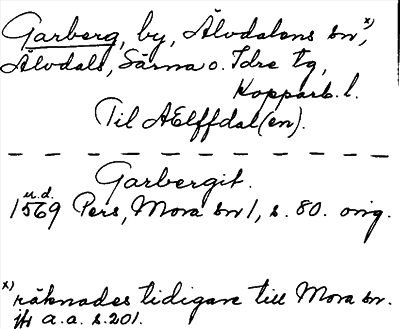 Garberg, by, Älvdalens sn x),
Älvdals, Särna o. Idre tg,
Kopparb. l.
Til AElffdal(en).
Garbergit.
u.d.
1569 Pers, Mora sn 1, s. 80. orig.
x) räknades tidigare till Mora sn.
jfr a.a. s.201.